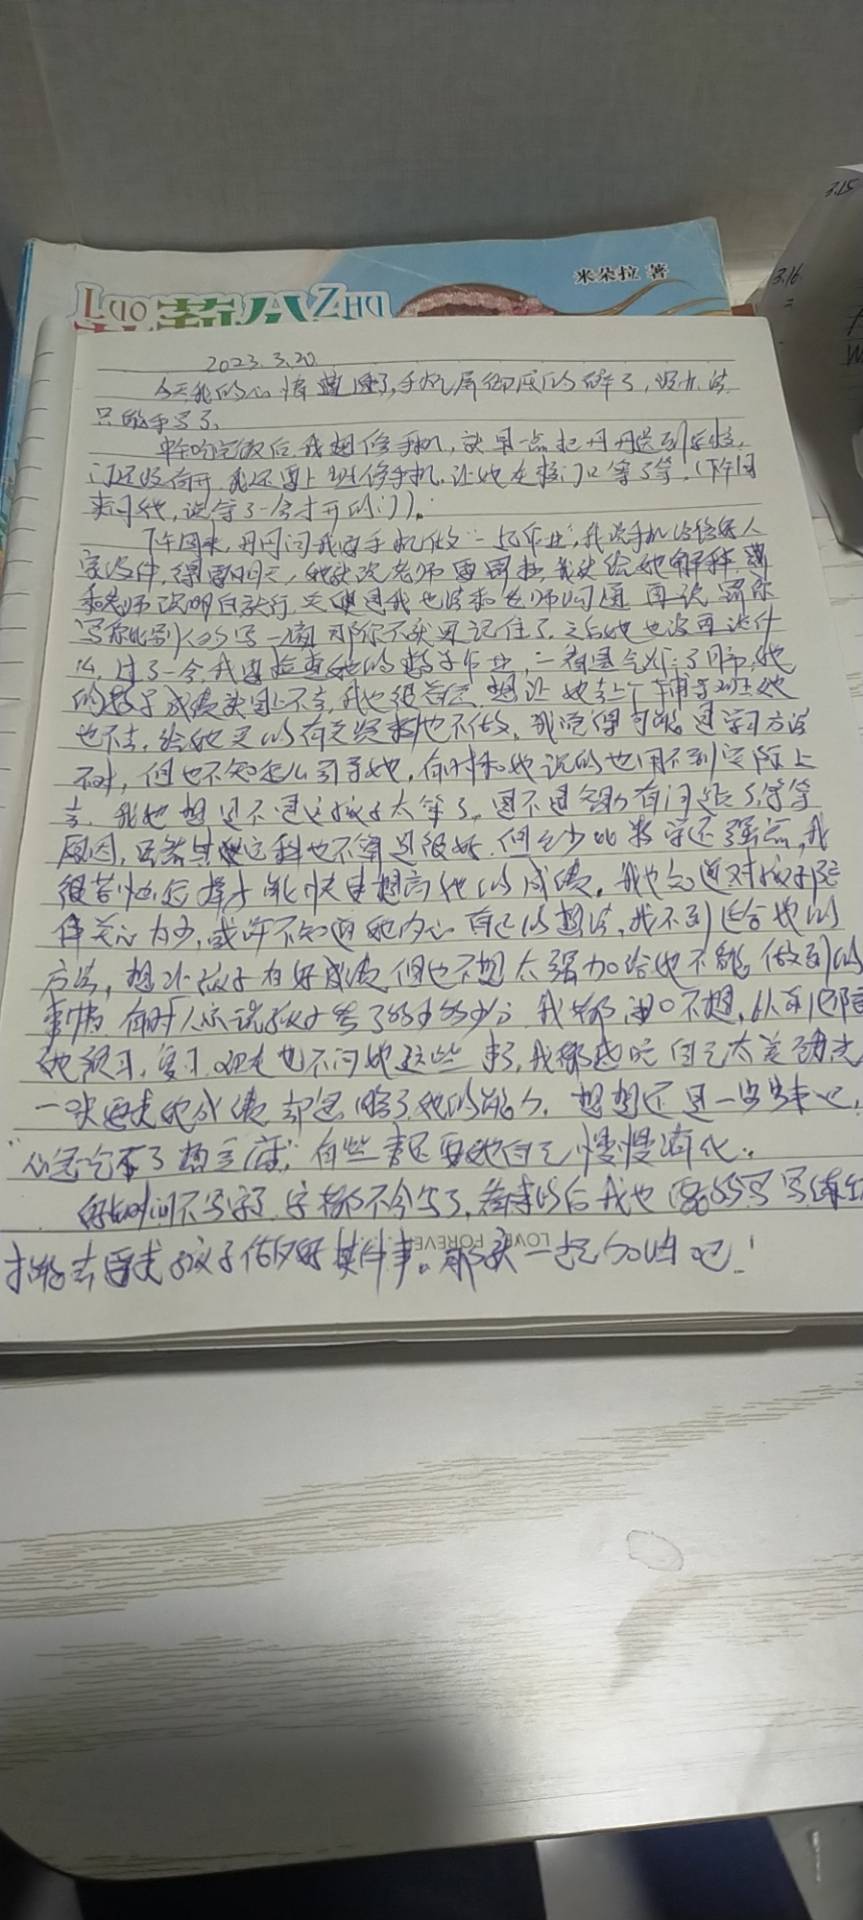 米朵拉 著
LUO
ZHU
公
3.15
3.16
2023.3.20
今天我的心情 手机屏彻底的碎了,没办法
只能手写了。
中午吃完饭后,我想修手机,就早一点把丹丹送到学校,
门还没有开,我还要上班修手机,让她在校门口等了等!(下午回
来问她,说等了一会才开的门)。
下午回来,丹丹问我要手机做"一起作业",我说手机没修好人
家没件,得要明天,她就说老师要 我就给她解释,
和老师说明白就行,关键是我也没和老师沟通 再说
写你比别人多写一遍 那你不就更记住了,之后她也没再说什
么,过了一会,我要检查她的数学作业,一看 了 她
的数学成绩就是上不去,我也很着急 想让她去上个辅导班她
也不去,给她买的有关资料她也不做,我觉得可能是学习方法
不对,但也不知怎么引导她,有时和她说的也用不到实际上
去,我也想是不是这孩子太笨了,是不是智力有问题了等等
原因,虽然其他这科也不算是很好,但至少比数学还强点,我
很苦恼怎样才能快速提高她的成绩,我也知道对孩子陪
伴关心为少,或许不知道她内心自己的想法,找不到适合她的
方法,想让孩子有好成绩但也不想太强加给她不能做到的
事情 有时人家说孩子考了多少多少分 我都 不想,从 
她预习,复习,现在也不问她这些事了,我都感觉自己太差劲了
一味要求她成绩 却忽略了她的能力,想想还是一步步来吧,
"心急吃不了热豆腐",有些事还要她自己慢慢消化。
好长时间不写字了,字都不会写了,看来以后我也 写写练练
才能去要求孩子做好某件事。那就一起加油吧!
LOVE FOREVER